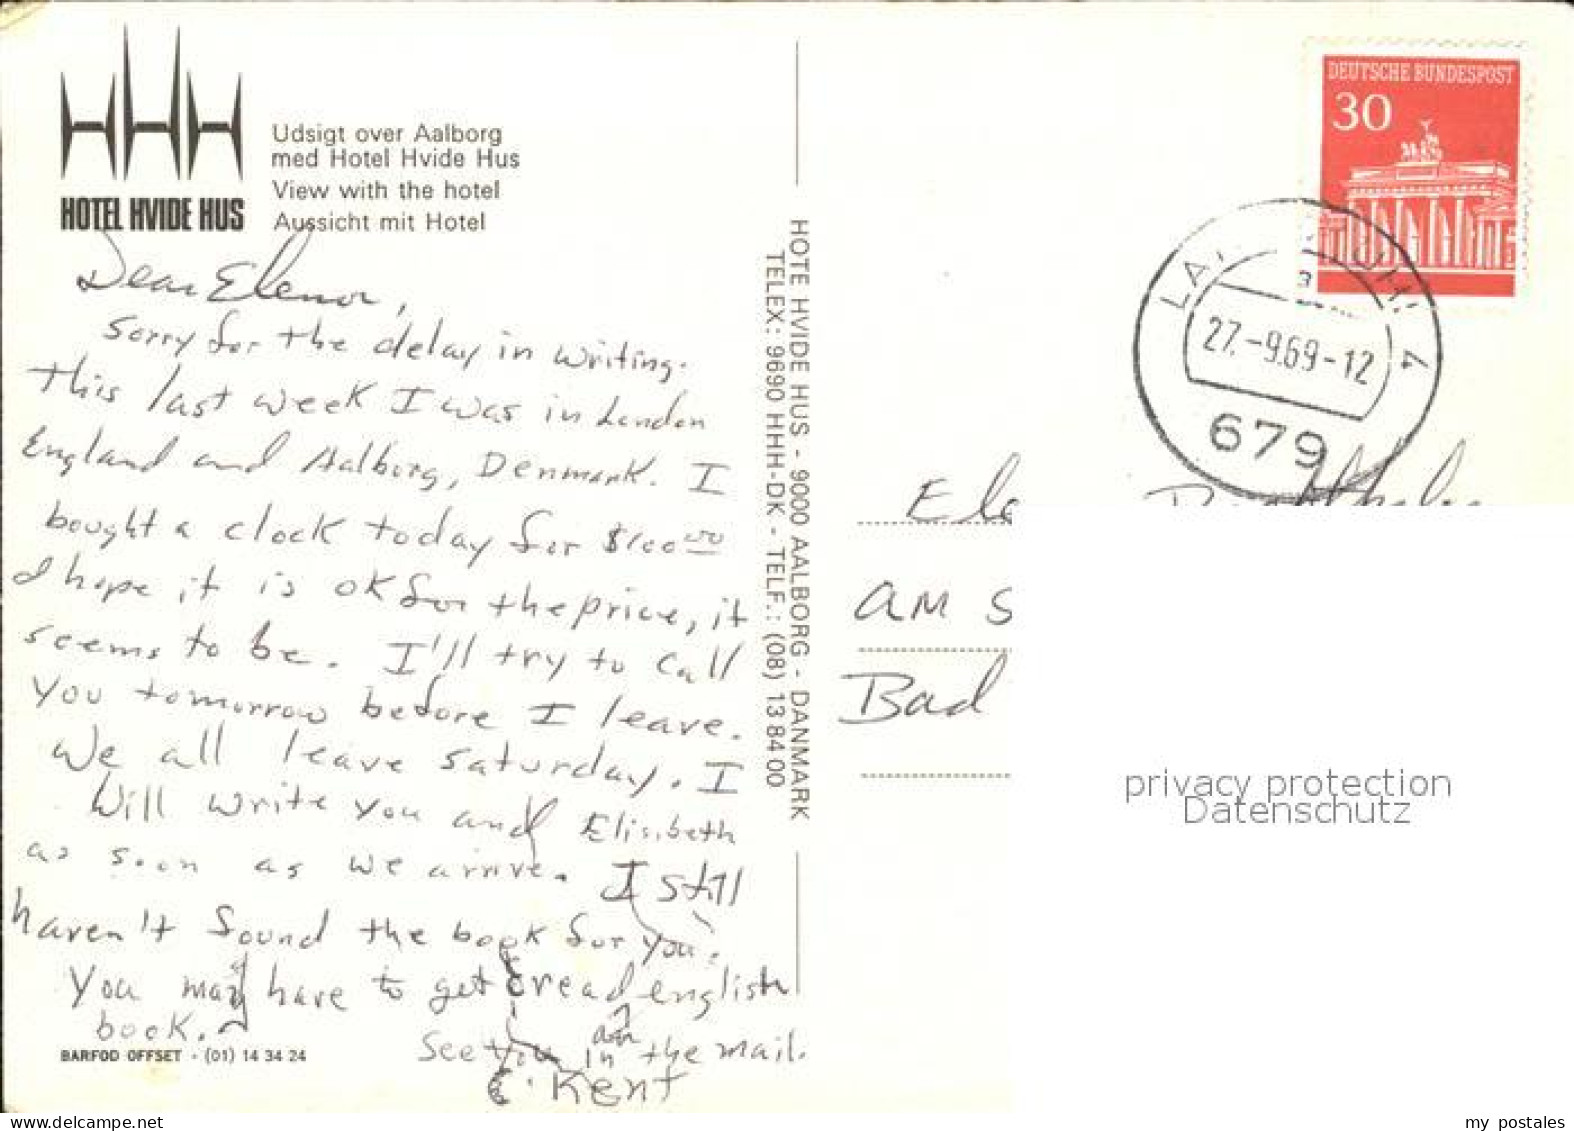 HOTEL HVIDE HUS
Udsigt over Aalborg
med Hotel Hvide Hus
View with the hotel
Aussicht mit Hotel
Dear Elenor,
sorry for the delay in writing.
This last week I was in London
England and Aalborg, Denmark. I
bought a clock today for $100.00
I hope it is ok for the price, it
seems to be. I'll try to call
you tomorrow before I leave.
We all leave saturday. I
will write you and Elisibeth
as soon as we arrive. I still
haven't found the book for you.
You may have to get & read an english
book.
See you in the mail.
Kent
BARFOD OFFSET - (01) 14 34 24
HOTE HVIDE HUS - 9000 AALBORG - DANMARK
TELEX: 9690 HHH-DK - TELF.: (08) 13 84 00
DEUTSCHE BUNDESPOST
30
27.-9.69-12
679
Ele
am S
Bad
privacy protection
Datenschutz
www.delcampe.net
my_postales